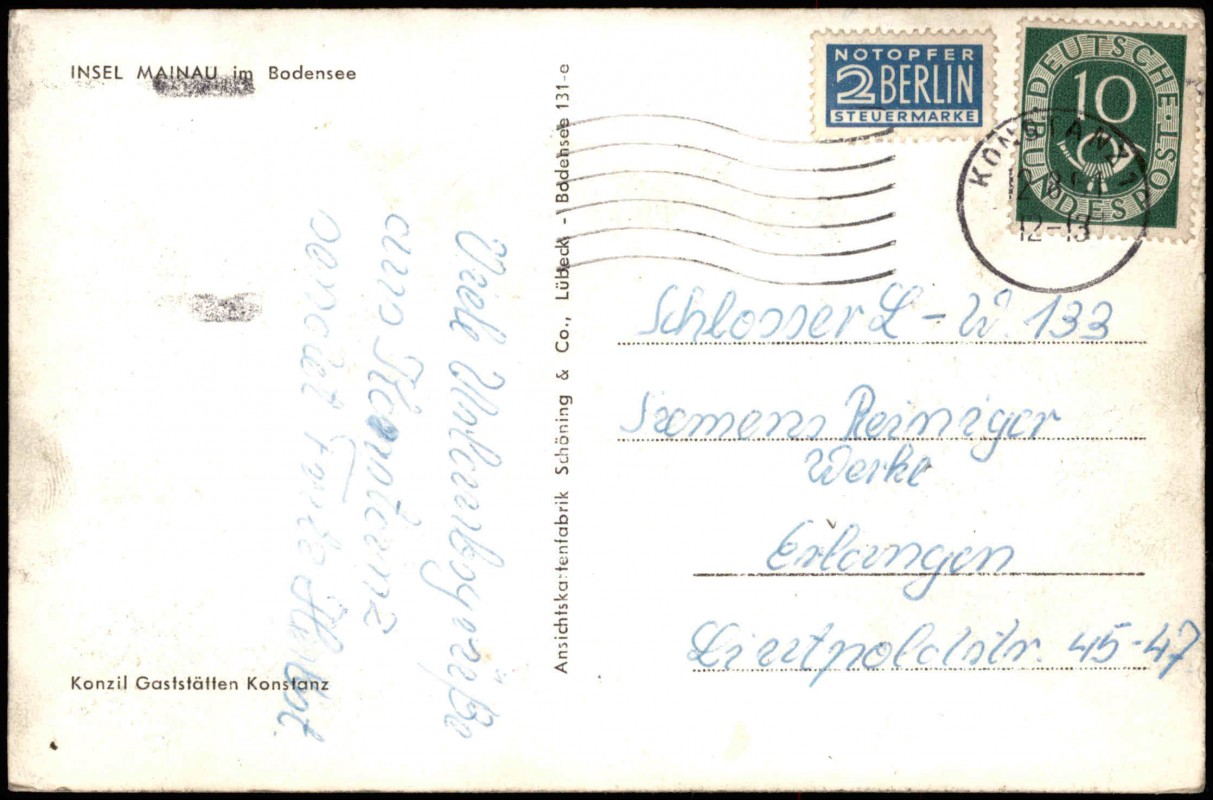 INSEL MAINAU im Bodensee
Viele Urlaubsgrüße
aus Konstanz
sendet
Konzil Gaststätten Konstanz
Ansichtskartenfabrik Schöning & Co., Lübeck - Bodensee 131-e
NOTOPFER
2 BERLIN
STEUERMARKE
DEUTSCHE BUNDESPOST
10
KONSTANZ
12-13
Schlosser L-W. 133
Siemens Reiniger
Werke
Erlangen
Luitpoldstr. 45-47